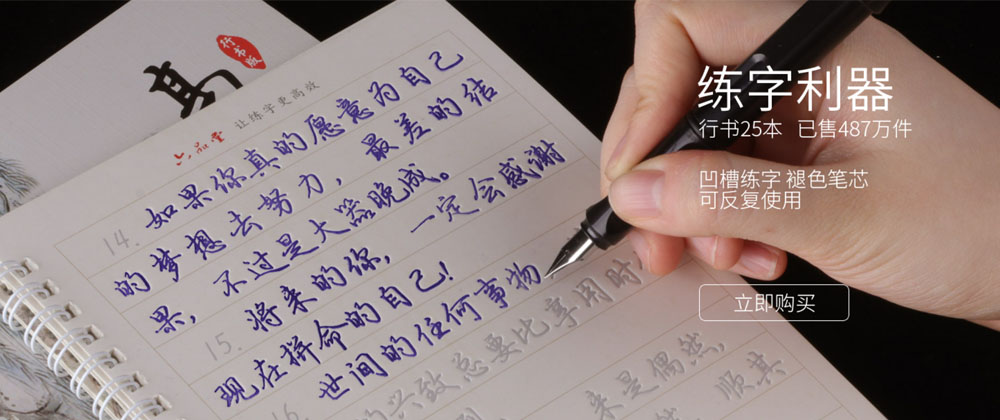 行书版
六品堂 让练字更高效
14. 如果你真的愿意为自己
的梦想去努力，最差的结
果，不过是大器晚成。
15. 将来的你，一定会感谢
现在拼命的自己！
16. 世间的任何事物，
的兴致总要比享用时
来是偶然，
顺其
练字利器
行书25本 已售487万件
凹槽练字 褪色笔芯
可反复使用
立即购买